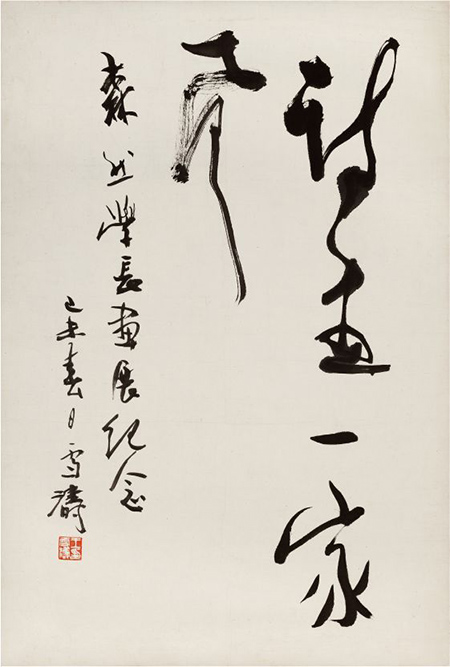 詩畫一家
森然學長畫展紀念
己未春日雪濤